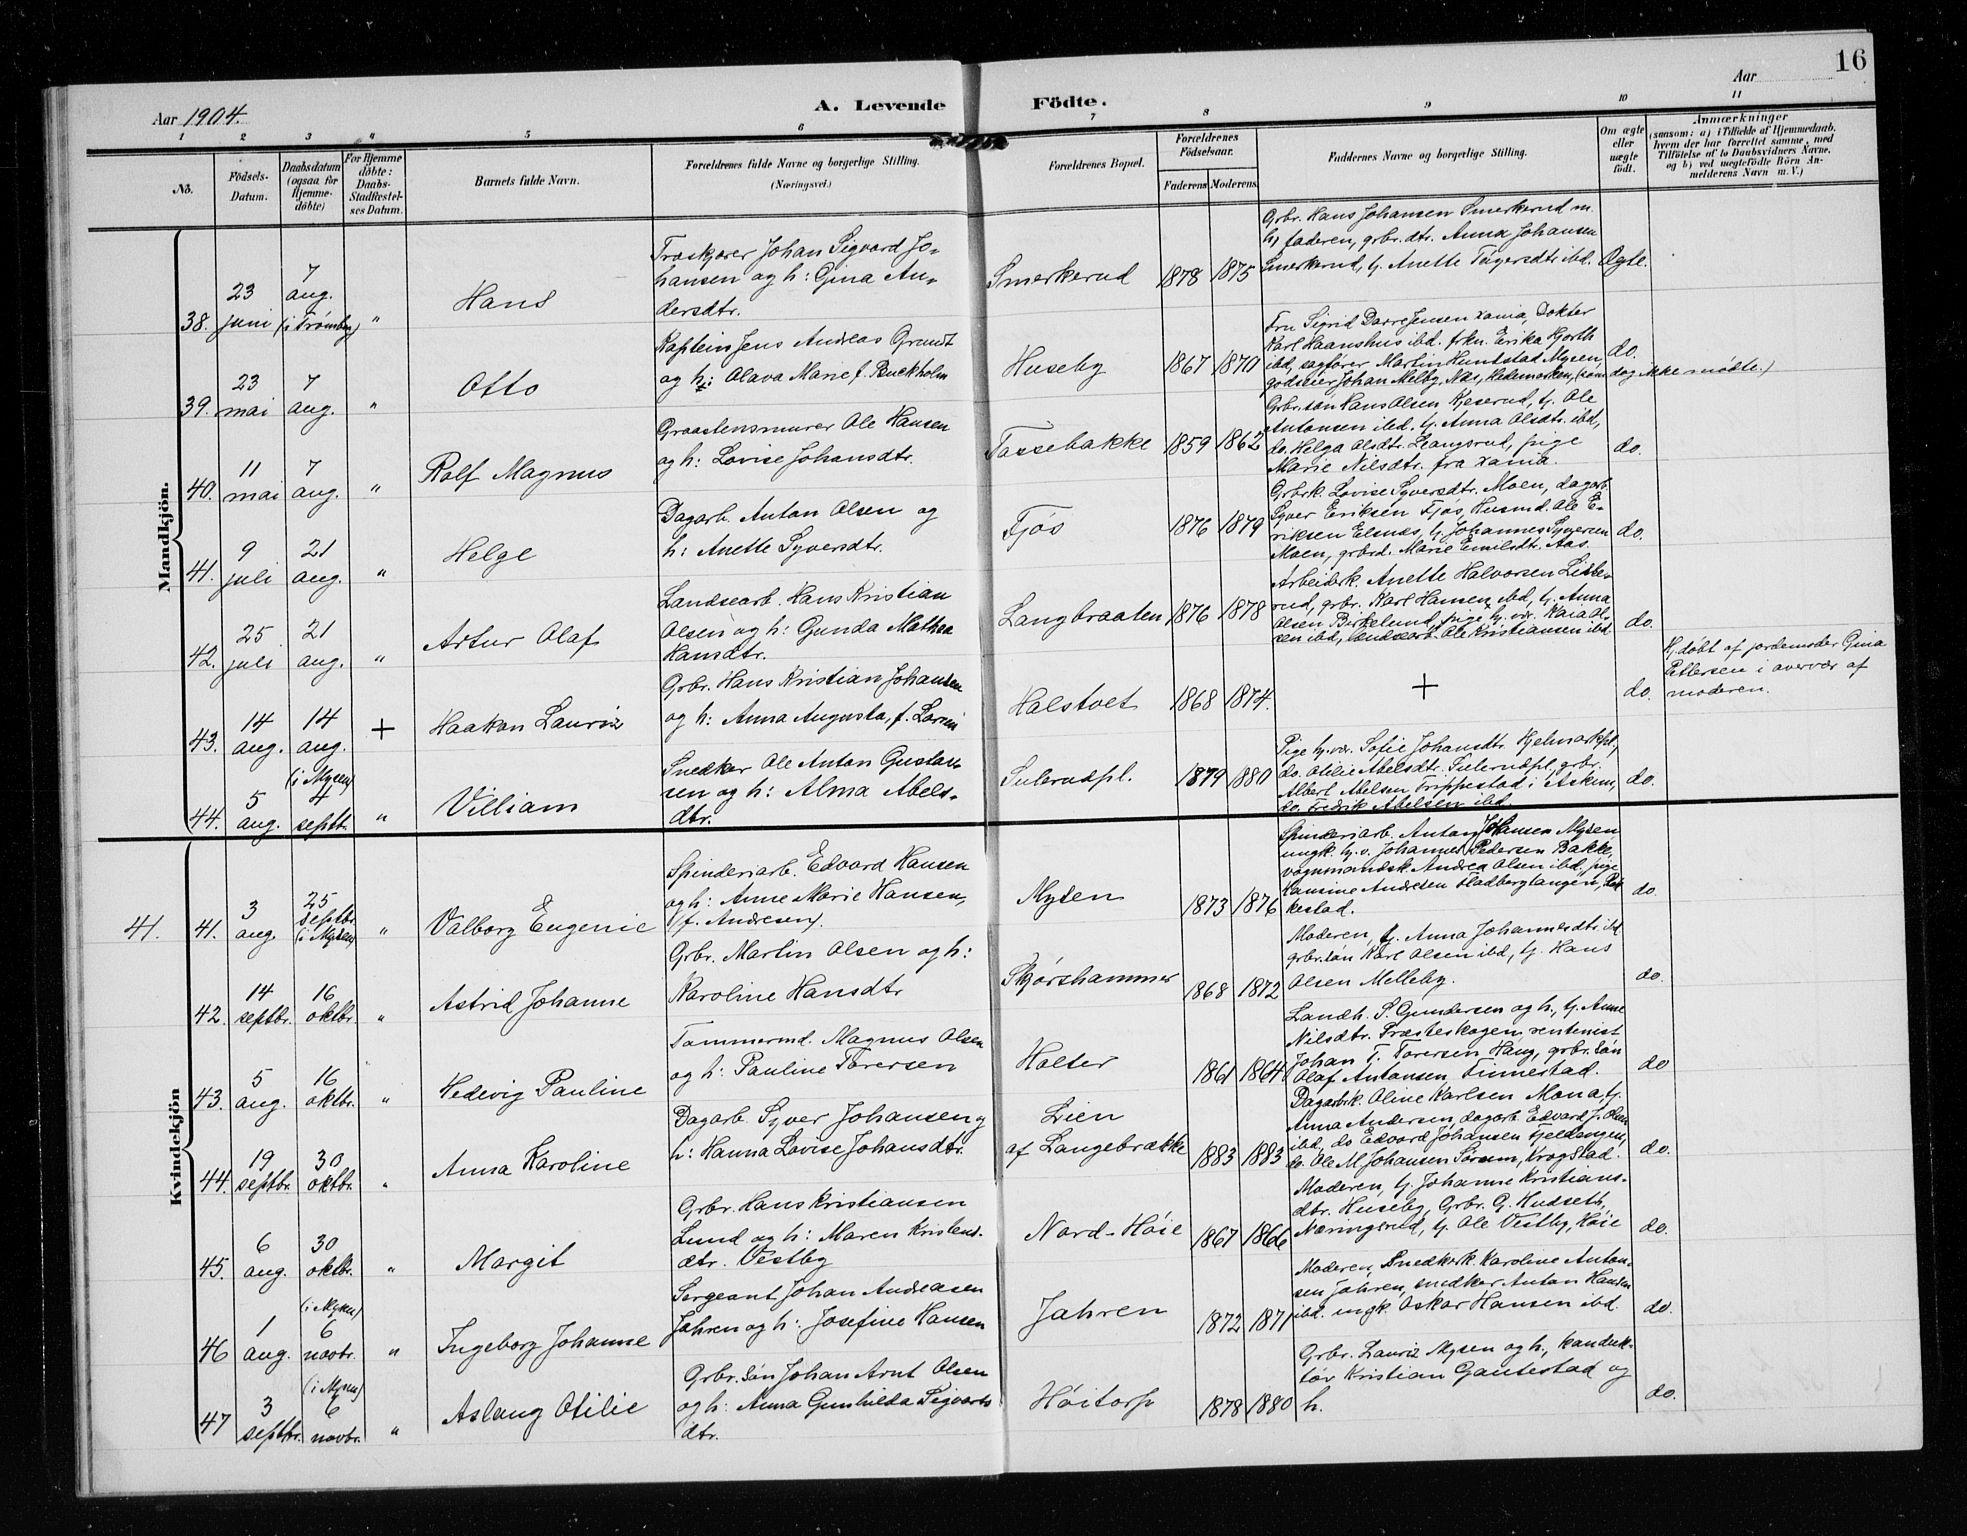 16
Aar 1904.
A. Levende
Födte.
Aar
1 2 3 " 5 6 7 8 9 10 11
No.
Födsels-
Datum.
Daabsdatum
(ogsaa for
Hjemme-
döbte)
For Hjemme
döbte:
Daabs-
Stadfæstel-
ses Datum.
Barnets fulde Navn.
Forældrenes fulde Navne og borgerlige Stilling.
(Næringsvei.)
Forældrenes Bopæl.
Forældrenes
Födselsaar.
Faderens
Moderens
Faddernes Navne og borgerlige Stilling.
Om ægte
eller
uægte
födt.
Anmærkninger
(saasom: a) i Tilfælde af Hjemmedaab,
hvem der har forrettet samme, med
Tilföielse af to Daabsvidners Navne,
og b) ved uegtefödte Börn An-
melderens Navn m. V.)
Mandkjön.
38.
23
juni
7
aug.
(i Trømborg)
"
Hans
Træskjærer Johan Sigvard Jo-
hansen og h: Gina An-
dersdtr.
Smerkerud
1878
1875
Grbr. Hans Johansen Smerkerud m.
h, faderen, grbr. dtr. Anna Johansen
Smerkerud, tj. Anette ibd.
Ægte.
39.
23
mai
7
aug.
"
Otto
Kaptein Jens Andreas Grandt
og h: Olava Marie f. Buckholm
Huseby
1867
1870
Fru Sigrid Darre Jensen Xania, Dokter
Karl Haanshus ibd. frkn. Erika Hjorth
ibd, sagfører Martin Hundstad Mysen,
godseier Johan Melby, Næs, Hedemarken, (som dog ikke mødte.)
do.
40.
11
mai
7
aug.
"
Rolf Magnus
Graastensmurer Ole Hansen
og h: Lovise Johansdtr.
Tassebakke
1859
1862
Grbr. søn Hans Olsen Kjeserud, tj. Ole
Antonsen ibd. tj. Anna Olsdtr. ibd,
do. Helga Olsdtr. Langsrud, pige
Marie Nilsdtr. fra Xania.
do.
41.
9
juli
21
aug.
"
Helge
Dagarb. Anton Olsen og
h: Anette Syversdtr.
Fjøs
1876
1879
Grbrk. Lovise Syversdtr. Moen, dagarb.
Syver Eriksen Fjøs, Husmd. Ole E-
riksen Elsnes, tj. Johannes Syversen
Moen, grbrd. Marie Emilsdtr. Aas.
do.
42.
25
juli
21
aug.
"
Artur Olaf
Landsearb. Hans Kristian
Olsen og h: Gunda Mathea
Hansdtr.
Langbraaten
1876
1878
Arbeiderk. Anette Halvorsen Liste-
rud, grbr. Karl Hansen ibd, tj. Anna
Olsen Birkelund, pige hj. vær. Kaia Ol-
sen ibd, landsearb. Ole Kristiansen ibd.
do.
43.
14
aug.
14
aug.
+
Haakon Lauriz
Grbr. Hans Kristian Johansen
og h: Anna Augusta, f.
Halstvet
1868
1874.
+
do.
Hj. døbt af jordemoder Gina
Pettersen i overvær af
moderen.
44.
5
aug.
(i Mysen)
4
septbr.
"
Villiam
Snedker Ole Anton Gustav-
sen og h: Alma Abels-
dtr.
Sulerudpl.
1879
1880
Pige hj. vær. Sofie Johansdtr. Hjelmarkpl,
do. Otilie Abelsdtr. Sulerudpl, grbr.
Albert Abelsen Trippestad i Askim,
do. Fredrik Abelsen ibd.
do.
Kvindekjön
41.
41.
3
aug.
25
septbr.
(i Mysen)
"
Valborg Eugenie
Spinderiarb. Edvard Hansen
og h: Anne Marie Hansen,
(f. Andresen).
Mysen
1873
1876
Spinderiarb. Anton Johansen Mysen
ungk. hj. v. Johannes Pedersen Bakke,
vognmandsk. Andrea Olsen ibd, pige
Hansine Andresen Fladberglangen, Rak-
kestad.
do.
42.
14
septbr.
16
oktbr.
"
Astrid Johanne
Grbr. Martin Olsen og h:
Karoline Hansdtr
Skjørshammer
1868
1872
Moderen, tj. Anna Johannesdtr ibd
grbr. søn Karl Olsen ibd, tj. Hans
Olsen Melleby.
do.
43.
5
aug.
16
oktbr.
"
Hedevig Pauline
Tømmermd. Magnus Olsen
og h: Pauline Torersen
Holter
1861
1864
Landh. S. Gundersen og h., tj. Anne
Nilsdtr. Præsteskogen, rentenist
Johan T. Torersen Haug, grbr. søn
Olaf Antonsen Finnestad.
do
44.
19
septbr.
30
oktbr.
"
Anna Karoline
Dagarb. Syver Johansen og
h: Hanna Lovise Johansdtr.
Lien
af Langebrække
1883
1883
Dagarbk. Oline Karlsen Mona, tj.
Anna Andersen, dagarb. Edvard J. Olsen
ibd, do Edvard Johansen Fjeldengen,
do. Ole M. Johansen Sørum, Krogstad.
do.
45.
6
aug.
30
oktbr.
"
Margit
Grbr. Hans Kristiansen
Lund og h: Maren Kristens-
dtr. Vestby
Nord-Høie
1867
1866
Moderen, tj. Johanne Kristians-
dtr. Huseby, Grbr. G. Hudseth,
Næringsrud, tj. Ole Vestby, Høie
do.
46
1
aug.
(i Mysen)
6
novbr.
"
Ingeborg Johanne
Sergeant Johan Andreasen
Jahren og h: Josefine Hansen
Jahren
1872
1871
Moderen, Snedkerk. Karoline Anton-
sen Jahren, snedker Anton Hansen
ibd. ungk. Oskar Hansen ibd.
do.
47
3
septbr.
(i Mysen)
6
novbr.
"
Aslaug Otilie
Grbr. søn Johan Arnt Olsen
og h: Anna Gunhilda Sigvarts
dtr.
Høitorp
1878
1880
Grbr. Lauriz Mysen og h, konduk-
tør Kristian Gautestad og
h.
do.